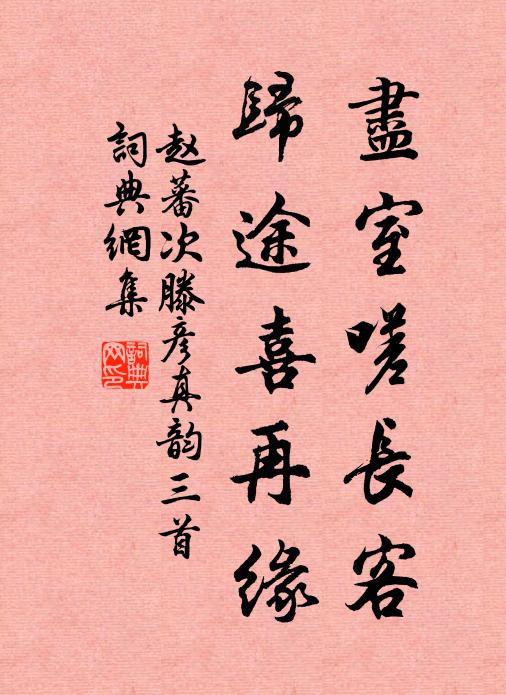 盡室嗟長客
歸途喜再緣
赵蕃次滕彦真韵三首
詞典網集
詞典網印